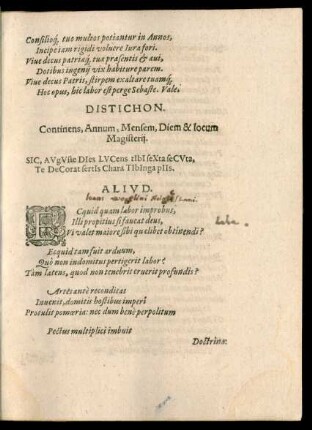 Consilioq́, tuo multos potiantur in Annos,
Incipe iam rigidi voluere Iura fori.
Viue decus patriæq́, tuæ præsentis & aui,
Dotibus ingenij vix habiture parem.
Viue decus Patris, stirpem exaltare tuamq́,
Hoc opus, hic labor est perge Sebaste. Vale.
DISTICHON.
Continens, Annum, Mensem, Diem & locum
Magisterij.
SIC, AVgVste DIes LVCens tIbI seXta seCVta,
Te DeCorat sertIs Chara TIbInga pIIs.
ALIVD.
ECquid quam labor improbus,
Illi propitius si faueat deus,
Vi valet maiore sibi quælibet obtinendi?
Ecquid tam fuit arduum,
Quò non indomitus pertigerit labor?
Tàm latens, quod non tenebris eruerit profundis?
Artes antè reconditas
Inuenit, domitis hostibus imperî
Protulit pomœria: nec dum benè perpolitum
Pectus multiplici imbuit
Doctrinæ